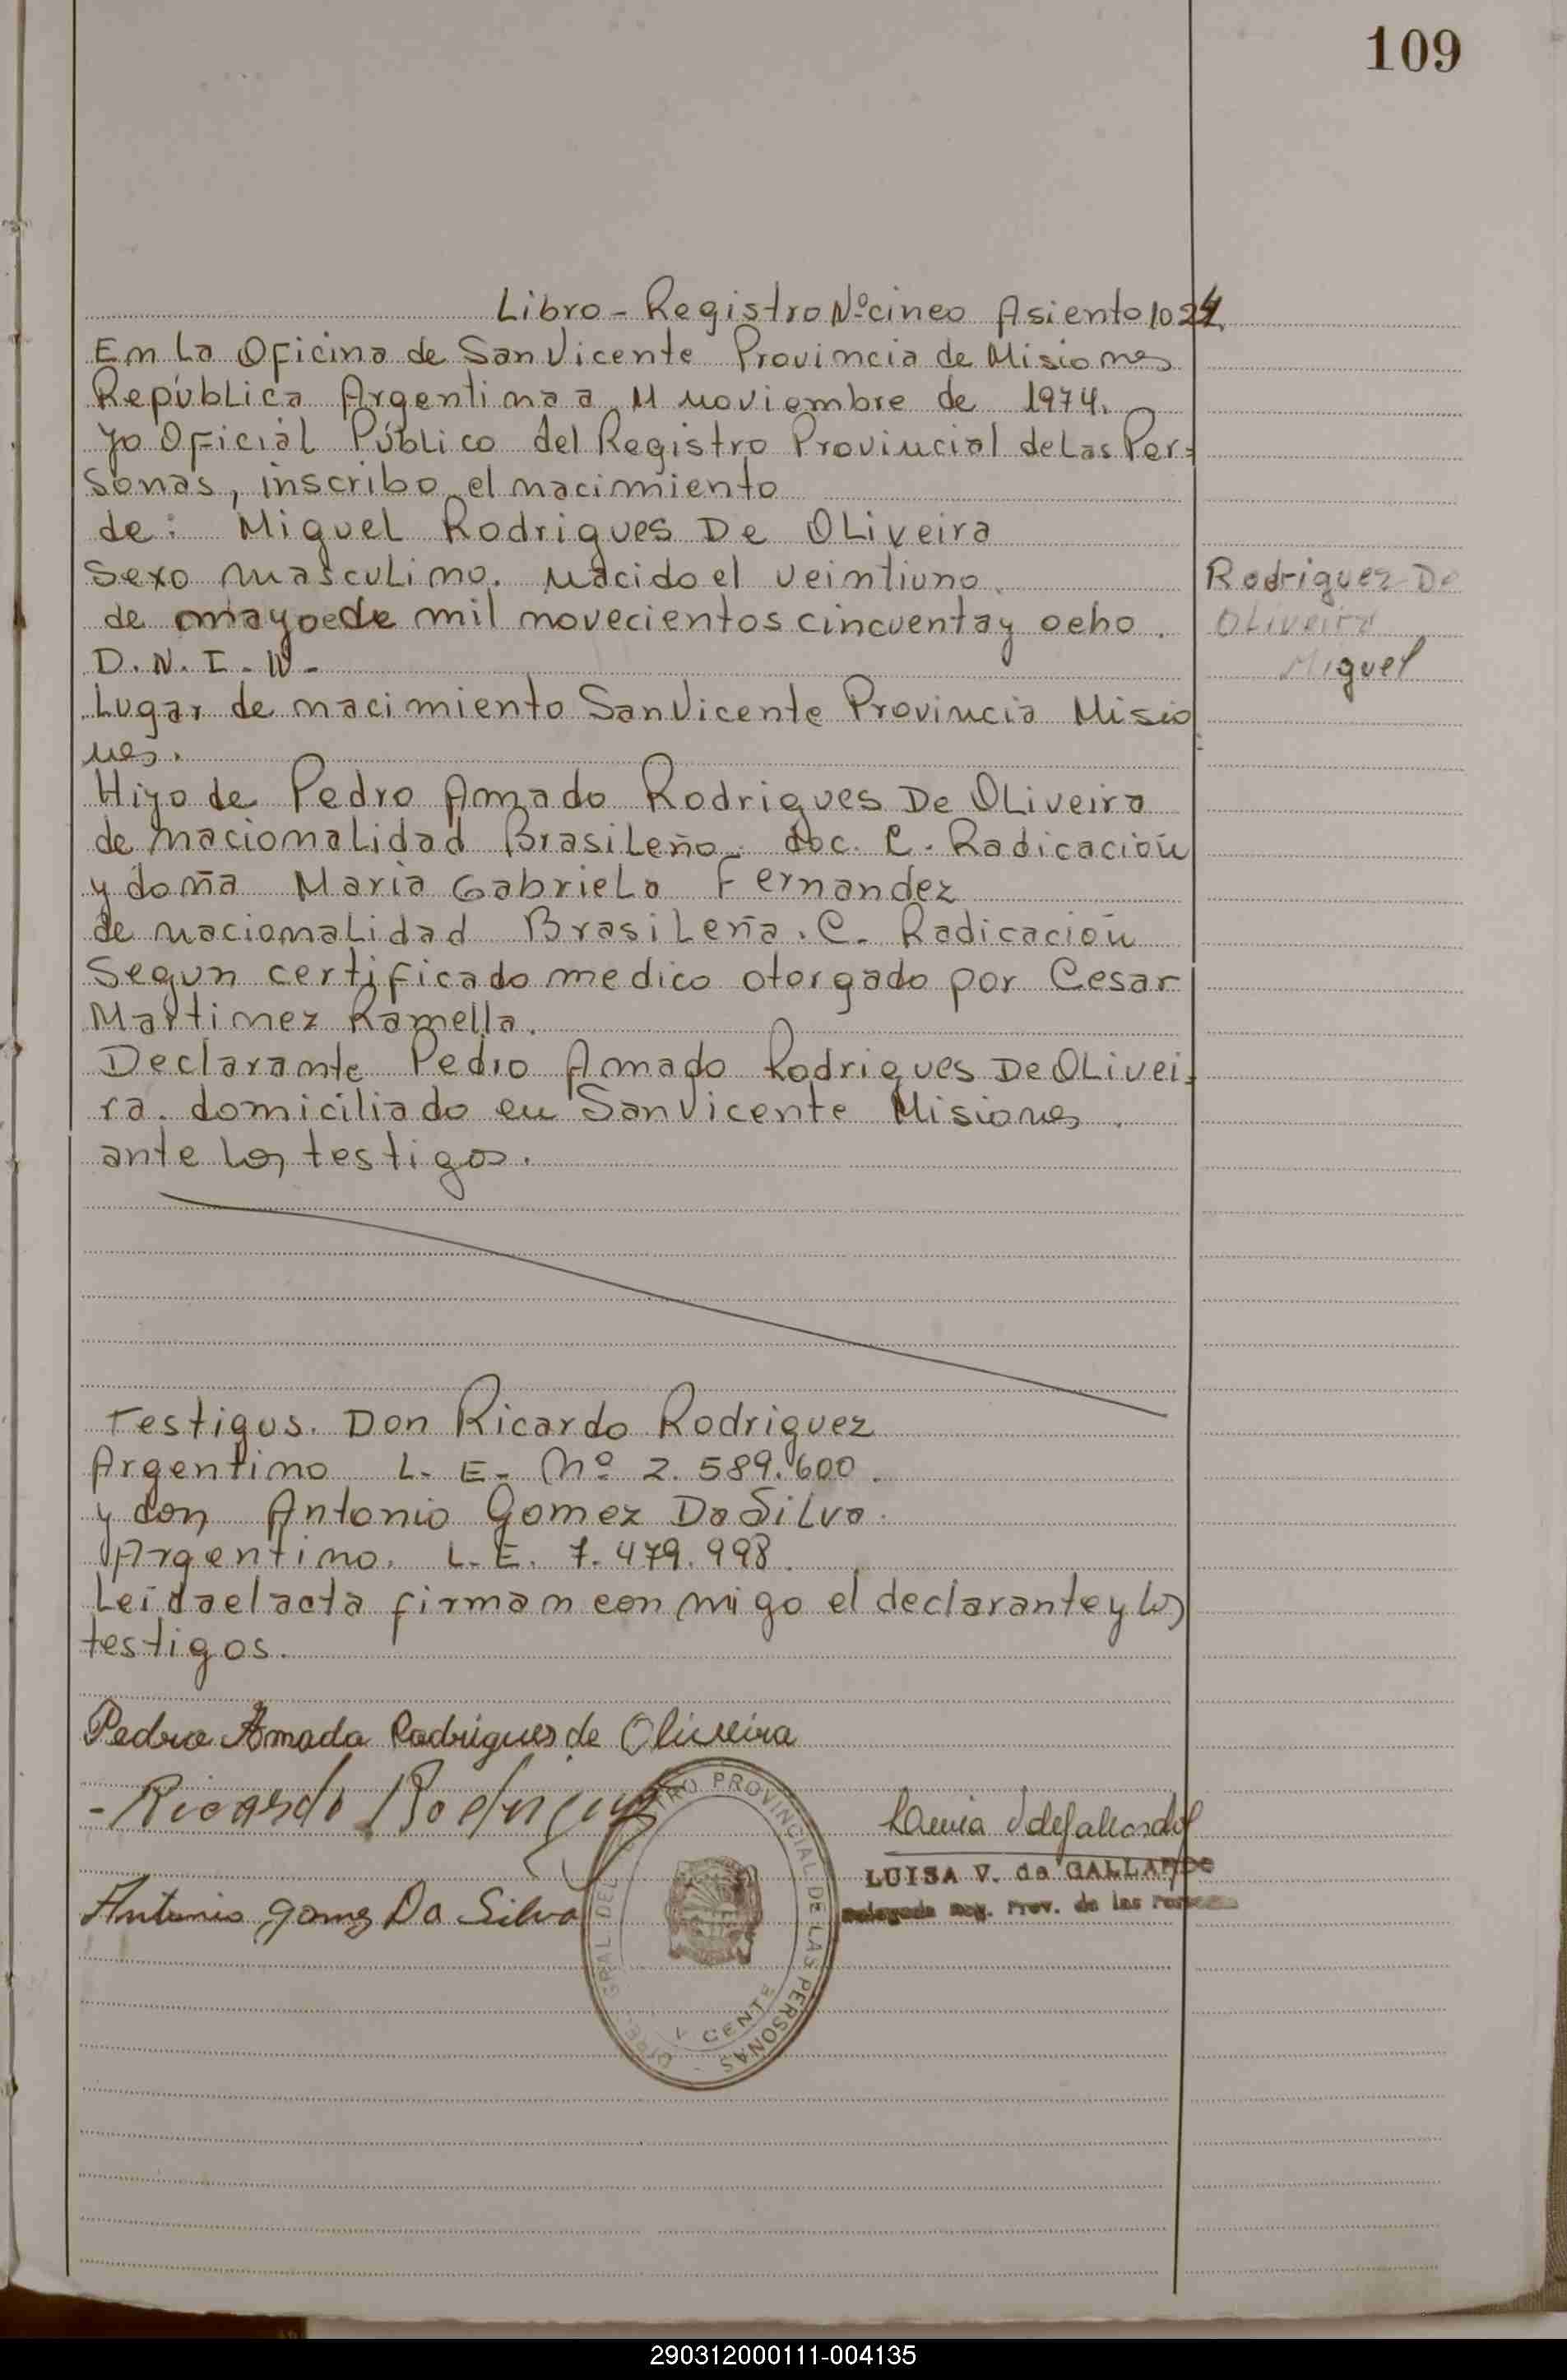 109
Libro - Registro Nº cinco Asiento 1024
En La Oficina de San Vicente Provincia de Misiones
República Argentina a 11 noviembre de 1974.
Yo Oficial Público del Registro Provincial de Las Per-
sonas, inscribo el nacimiento
de: Miguel Rodrigues De Oliveira
Sexo masculino. nacido el veintiuno
de mayo de mil novecientos cincuenta y ocho.
Rodriguez De
Oliveira
Miguel
D.N.I. Nº -
Lugar de nacimiento San Vicente Provincia Misio
nes.
Hijo de Pedro Amado Rodrigues De Oliveira
de nacionalidad Brasileño. doc. C. Radicación
y doña Maria Gabriela Fernandez
de nacionalidad Brasileña. C. Radicación
Segun certificado medico otorgado por Cesar
Martinez Ramella.
Declarante Pedro Amado Rodrigues De Olivei-
ra. domiciliado en San Vicente Misiones.
ante los testigos.
Testigos. Don Ricardo Rodriguez
Argentino L. E. Nº 2.589.600.
y don Antonio Gomez Da Silva.
Argentino. L. E. 7.479.998.
Leída el acta firman conmigo el declarante y los
testigos.
Pedro Amado Rodrigues de Oliveira
- Ricardo Rodriguez
Antonio Gomez Da Silva
PROVINCIAL DE LAS PERSONAS
LUISA V. de GALLARDO
Delegada Reg. Prov. de las Personas
290312000111-004135